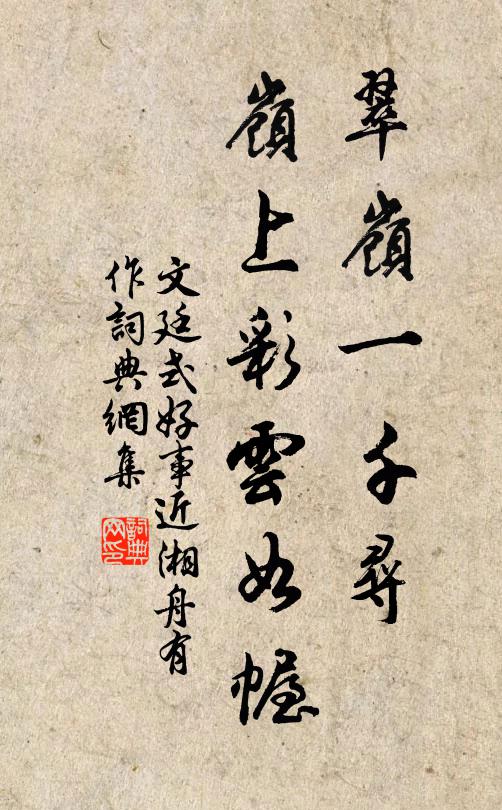 翠嶺一千尋
嶺上彩雲如幄
文廷式好事近湘舟有
作詞典網集
詞典網印